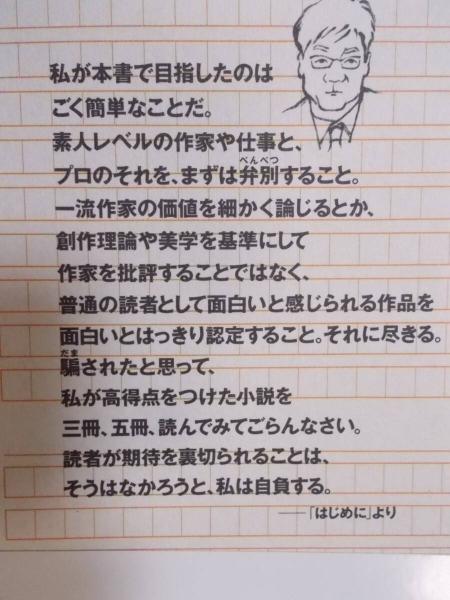 私が本書で目指したのは
ごく簡単なことだ。
素人レベルの作家や仕事と、
べんべつ
プロのそれを、まずは弁別すること。
一流作家の価値を細かく論じるとか、
創作理論や美学を基準にして
作家を批評することではなく、
普通の読者として面白いと感じられる作品を
面白いとはっきり認定すること。それに尽きる。
だま
騙されたと思って、
私が高得点をつけた小説を
三冊、五冊、読んでみてごらんなさい。
読者が期待を裏切られることは、
そうはなかろうと、私は自負する。
——「はじめに」より